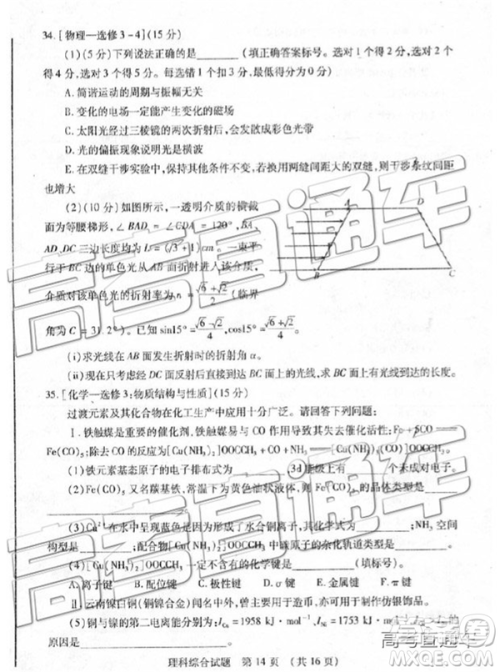 34.[物理—选修3-4](15分)
(1)(5分)下列说法正确的是 (填正确答案标号。选对1个得2分,选对
2个得4分,选对3个得5分。每选错1个扣3分,最低得分为0分)
A.简谐运动的周期与振幅无关
B.变化的电场一定能产生变化的磁场
C.太阳光经过三棱镜的两次折射后,可以看到彩色光带
D.光的偏振现象说明光是横波
E.在双缝干涉实验中,其他条件不变,换用两缝间距更大的双缝,则干涉条纹间距
也增大
(2)(10分)如图所示,一透明介质的横截
面为等腰梯形,∠BAD=∠CDA=120°,
AD、DC三边长度均为 一束平
行于BC边的单色光从AB面射入该介质,该
介质对该单色光的折射率为n= (临界
角为C=31.2°)。已知sin15°=(√6-√2)/4,cos15°=(√6+√2)/4。
(i)求光线在AB面上发生折射时的折射角α。
(ii)
A
D
B
C
35.[化学—选修3:物质结构与性质](15分)
过渡元素及其化合物在化工生产中应用十分广泛。请回答下列问题:
Ⅰ.铁触媒是重要的催化剂,铁触媒易与CO作用导致其失去催化活性:Fe+5CO══
Fe(CO)₅;除去CO的反应为[Cu(NH₃)₂]OOCCH₃+CO+NH₃══[Cu(NH₃)₃(CO)]OOCCH₃。
(1)铁元素基态原子的电子排布式为
(2)Fe(CO)₅又名羰基铁,常温下为黄色油状液体,则Fe(CO)₅的晶体类型是
(3)
构型是 ;配合物[Cu(NH₃)₂]OOCCH₃中碳原子的杂化轨道类型是
(4)[Cu(NH₃)₂]OOCCH₃中不含有的化学键是 (填标号)。
A.离子键 B.配位键 C.极性键 D.非极性键 E.金属键 F.π键
Ⅱ.云南镍白铜(铜镍合金)闻名中外,曾主要用于造币,亦可用于制作仿银饰品。
(5)铜与镍的第二电离能分别为:I_Cu=1958 kJ·mol⁻¹、I_Ni=1753 kJ·mol⁻¹,I_Cu>I_Ni的
原因是
理科综合试题 第14页 (共16页)
高考直通车
高考直通车
高考直通车